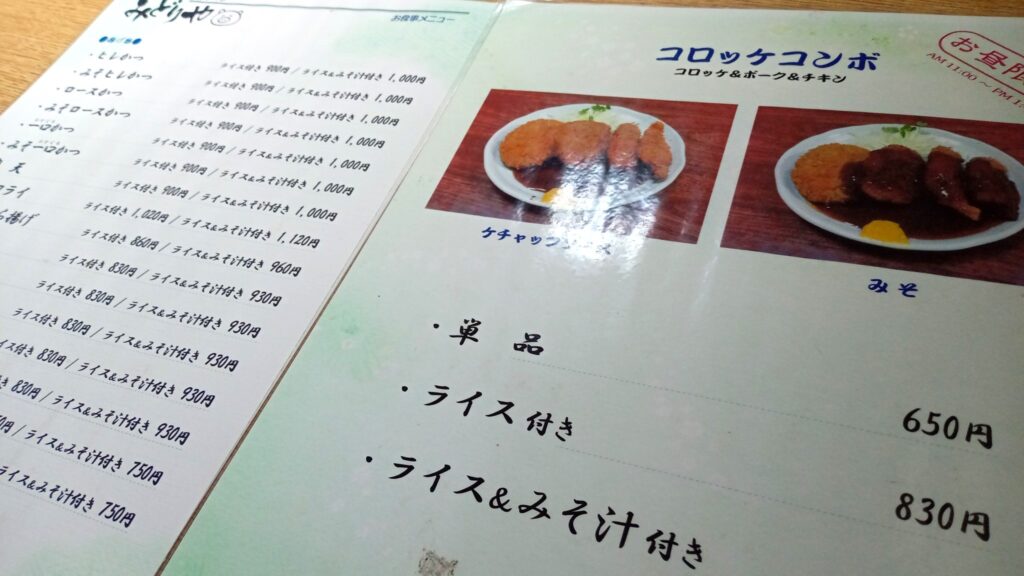 みどりや
お食事メニュー
・ヒレかつ
ライス付き 900円 / ライス&みそ汁付き 1,000円
・みそヒレかつ
ライス付き 900円 / ライス&みそ汁付き 1,000円
・ロースかつ
ライス付き 900円 / ライス&みそ汁付き 1,000円
・みそロースかつ
ライス付き 900円 / ライス&みそ汁付き 1,000円
・一口かつ
ライス付き 900円 / ライス&みそ汁付き 1,000円
・みそ一口かつ
ライス付き 900円 / ライス&みそ汁付き 1,000円
天
ライス付き 1,020円 / ライス&みそ汁付き 1,120円
ライ
ライス付き 860円 / ライス&みそ汁付き 960円
揚げ
ライス付き 830円 / ライス&みそ汁付き 930円
ライス付き 830円 / ライス&みそ汁付き 930円
ライス付き 830円 / ライス&みそ汁付き 930円
イス付き 830円 / ライス&みそ汁付き 930円
き 830円 / ライス&みそ汁付き 930円
円 / ライス&みそ汁付き 750円
ライス&みそ汁付き 750円
コロッケコンボ
コロッケ&ポーク&チキン
お昼限
AM 11:00～PM 1
ケチャップ
みそ
・単 品
650円
・ライス付き
830円
・ライス&みそ汁付き